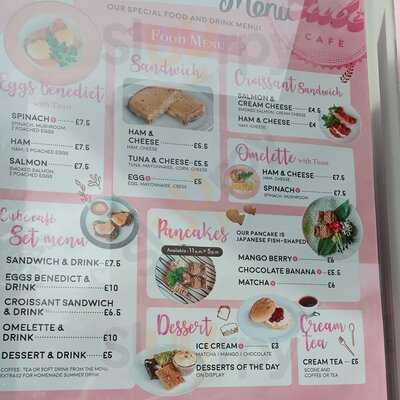 OUR SPECIAL FOOD AND DRINK MENU!
Menu
CAFE
FOOD MENU
Eggs Benedict
with Toast
SPINACH £7.5
SPINACH, MUSHROOM,
2 POACHED EGGS
HAM £7.5
HAM,
2 POACHED EGGS
SALMON £7.5
SMOKED SALMON
2 POACHED EGGS
Sandwich
HAM &
CHEESE £5.5
HAM, CHEESE
TUNA & CHEESE £5.5
TUNA, MAYONNAISE, CORN, CHEESE
EGG £5
EGG, MAYONNAISE, CRESS
Croissant Sandwich
SALMON &
CREAM CHEESE £4.5
SMOKED SALMON, CREAM CHEESE
HAM & CHEESE £4
HAM, CHEESE
Omelette with Toast
HAM & CHEESE £7.5
HAM, CHEESE
SPINACH £7.5
SPINACH, MUSHROOM
Set menu
SANDWICH & DRINK £7.5
EGGS BENEDICT &
DRINK £10
CROISSANT SANDWICH
& DRINK £6.5
OMELETTE &
DRINK £10
DESSERT & DRINK £5
COFFEE, TEA OR SOFT DRINK FROM THE MENU
EXTRA £2 FOR HOMEMADE SUMMER DRINK
Pancakes
Available: 11a.m > 5p.m
OUR PANCAKE IS
JAPANESE FISH-SHAPED
MANGO BERRY £6
CHOCOLATE BANANA £5
MATCHA £6
Dessert
ICE CREAM £3
MATCHA / MANGO / CHOCOLATE
DESSERTS OF THE DAY
ON DISPLAY
Cream
tea
CREAM TEA £5
SCONE AND
COFFEE OR TEA